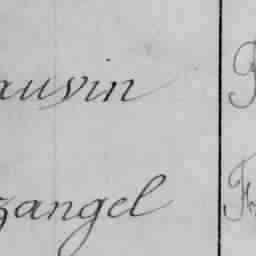 auvin
zangel